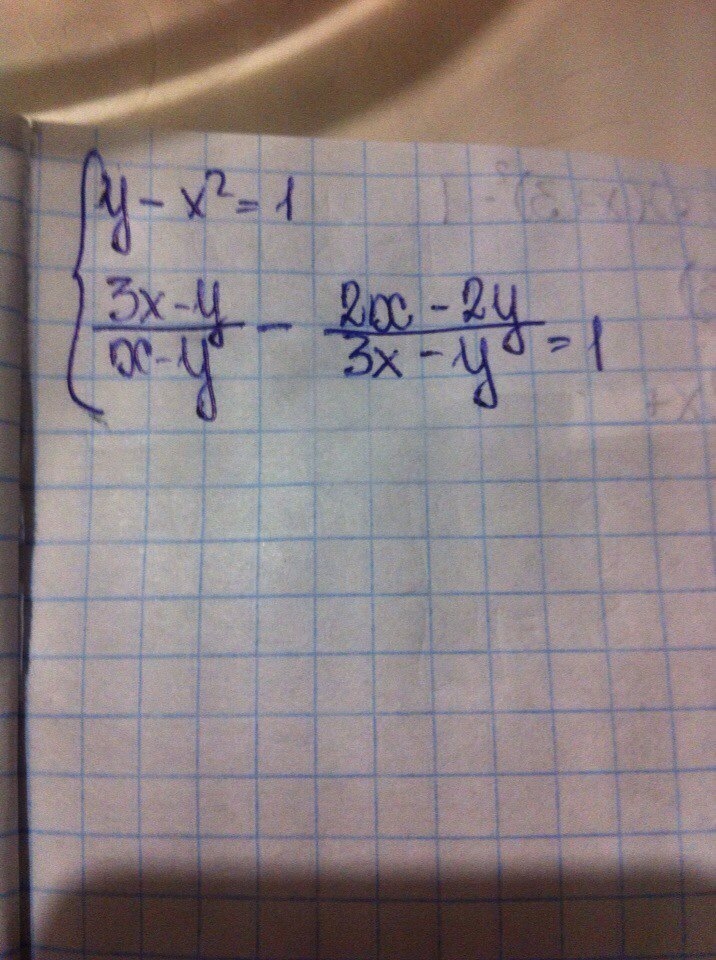 y - x² = 1
3x - y / x - y - 2x - 2y / 3x - y = 1